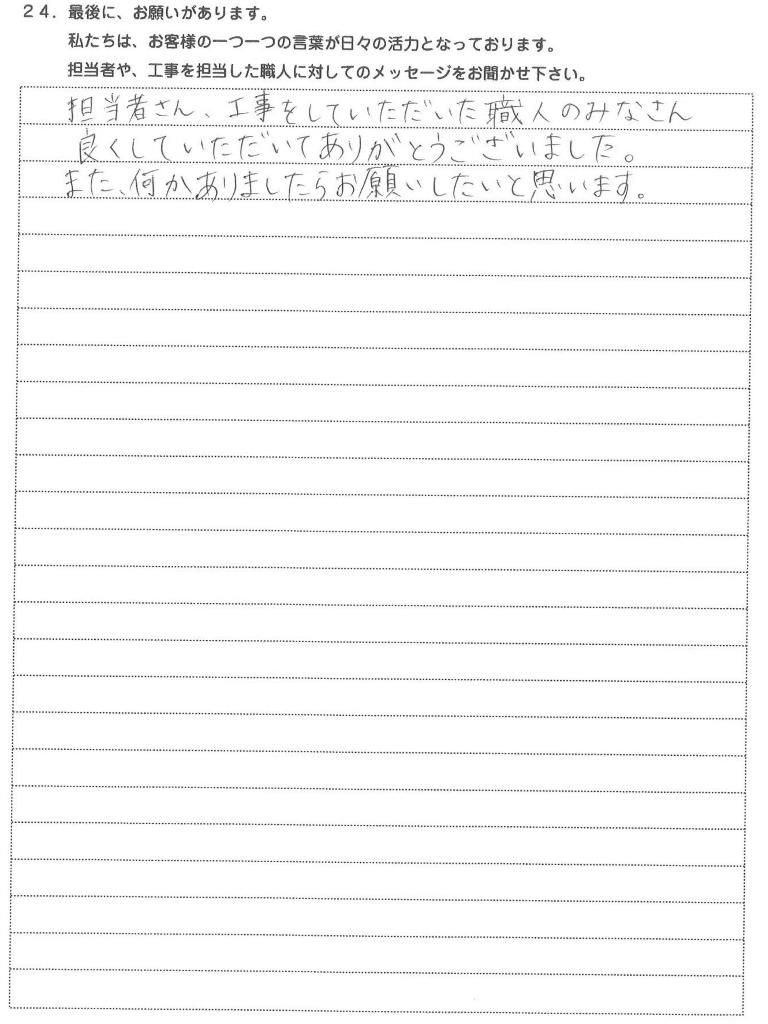 24．最後に、お願いがあります。
私たちは、お客様の一つ一つの言葉が日々の活力となっております。
担当者や、工事を担当した職人に対してのメッセージをお聞かせ下さい。
担当者さん、工事をしていただいた職人のみなさん
良くしていただいてありがとうございました。
また、何かありましたらお願いしたいと思います。